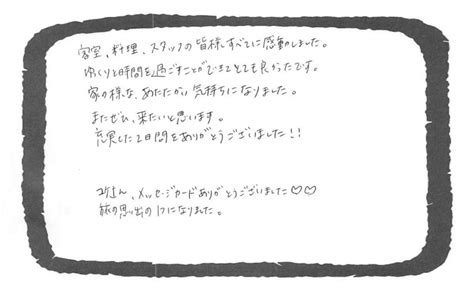 客室、料理、スタッフの皆様、すべてに感動しました。
ゆっくりと時間を過ごすことができてとても良かったです。
家の様な、あたたかい気持ちになりました。
またぜひ、来たいと思います。
充実した2日間をありがとうございました!!
さん、メッセージカードありがとうございました♡♡
旅の思い出の1つになりました。